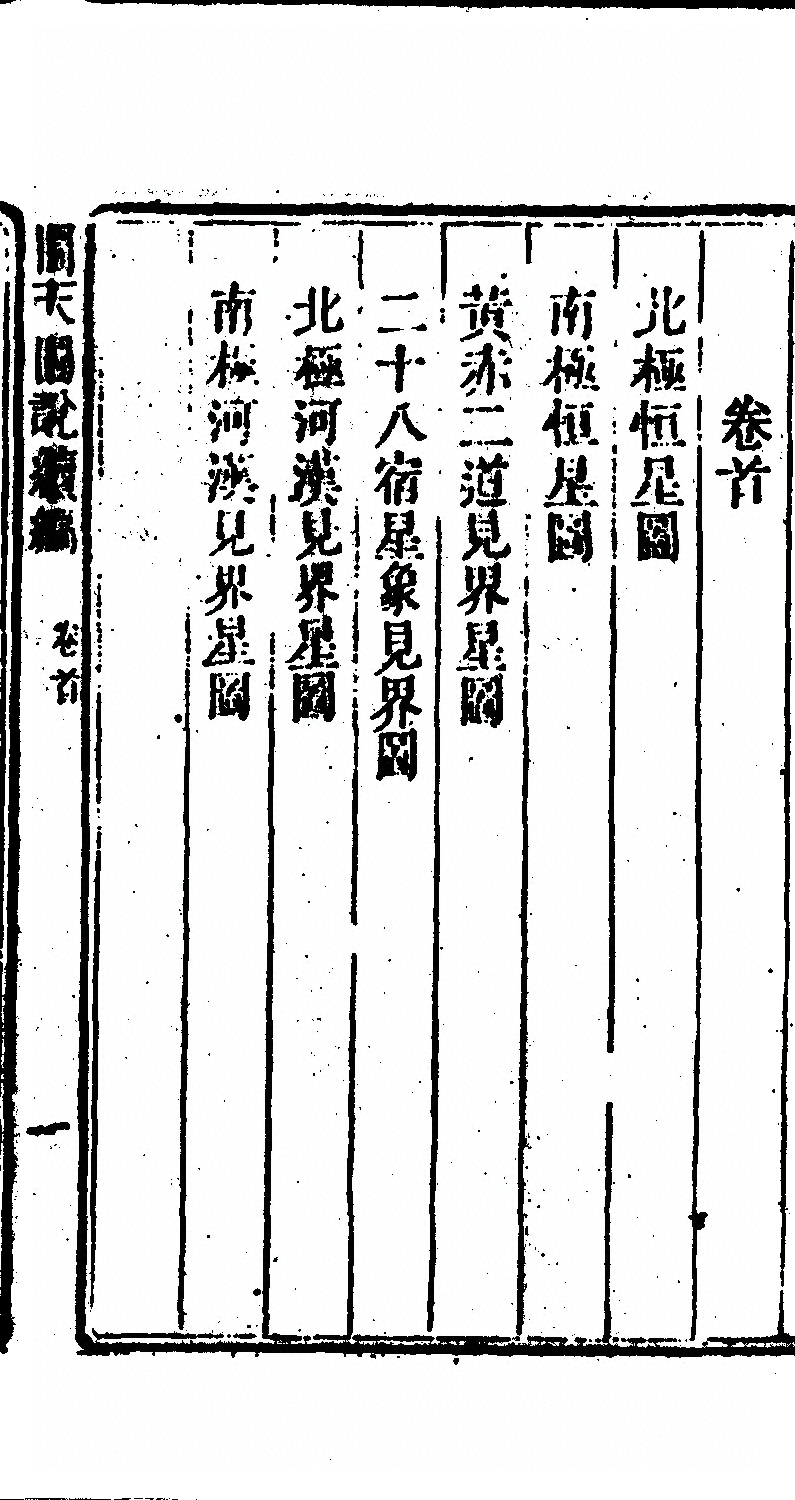 卷首
北極恒星圖
南極恒星圖
黃赤二道見界星圖
二十八宿星象見界圖
北極河漢見界星圖
南極河漢見界星圖
圜天圖說續編 卷首 一